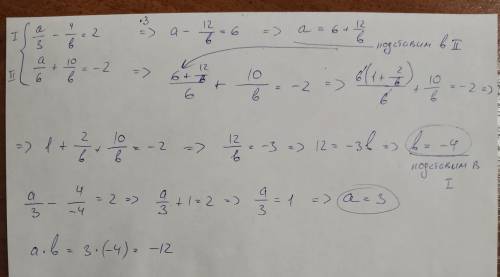 I { a/3 - 4/b = 2 |·3 => a - 12/b = 6 => a = 6 + 12/b
подставим в II
II { a/6 + 10/b = -2 => (6 + 12/b)/6 + 10/b = -2 => 6(1 + 2/b)/6 + 10/b = -2 =>
=> 1 + 2/b + 10/b = -2 => 12/b = -3 => 12 = -3b => b = -4
подставим в I
a/3 - 4/-4 = 2 => a/3 + 1 = 2 => a/3 = 1 => a = 3
a · b = 3 · (-4) = -12